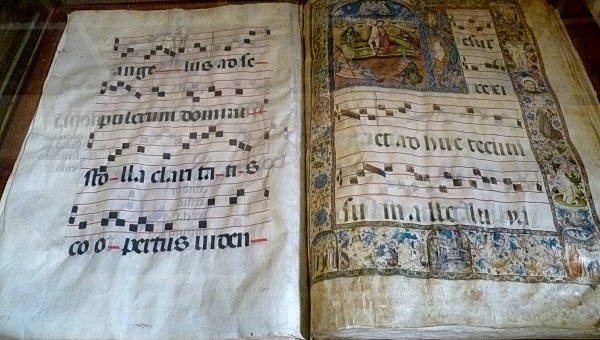 ange- lus ad se-
pulcrum domini
sto-lla clari ta-ti-s
co o-pertus viden-
esur
rexi
et ad huc tecum
sum alleluya